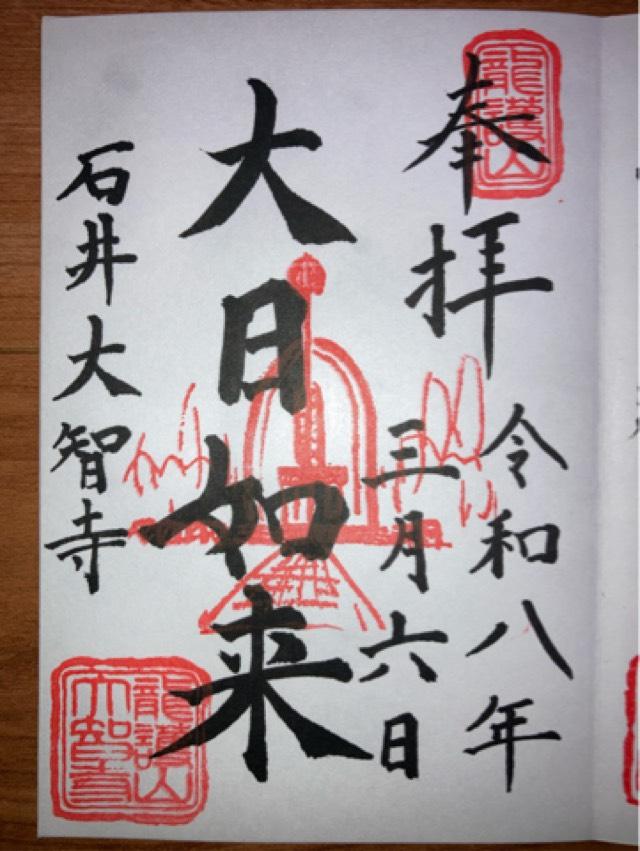 龍護山
奉拝
令和八年
三月六日
大日如来
石井大智寺
龍護山
大智寺